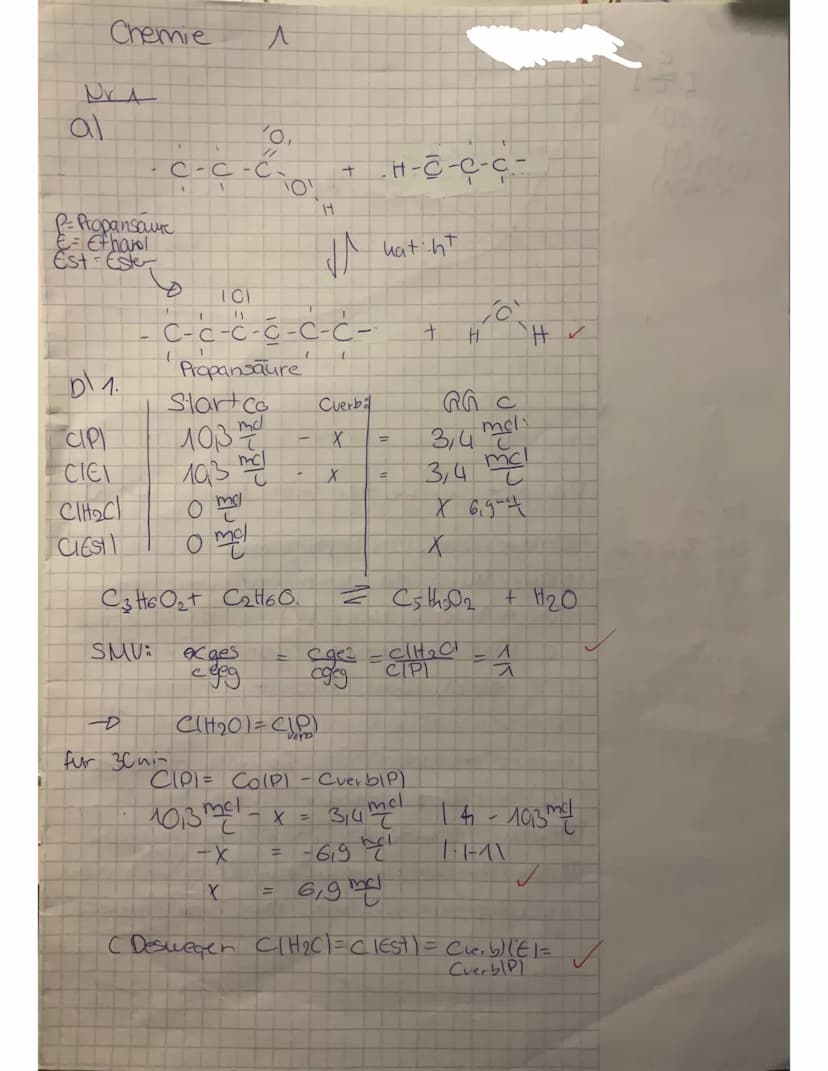 Chemie 1
Nr 1
a)
O
C-C-C O H + H-O-C-C-
P=Propansäure
E=Ethanol
Est=Ester
⇌ kat. H+
|O|
-C-C-C-O-C-C- + H O H ✓
Propansäure
b) 1.
Start c0 Cverb
c(P) 10,3 mol/L - x = 3,4 mol/L
c(E) 10,3 mol/L - x = 3,4 mol/L
c(H2O) 0 mol/L x 6,9 mol/L
c(Est) 0 mol/L x
C3H6O2 + C2H6O ⇌ C5H10O2 + H2O
SMV: cges/cgeg = cges/cgeg = c(H2O)/c(P) = 1/1 ✓
→ c(H2O) = c(P)verb
für 30min
c(P) = c0(P) - cverb(P)
10,3 mol/L - x = 3,4 mol/L | - 10,3 mol/L
-x = -6,9 mol/L | ·(-1)
x = 6,9 mol/L ✓
(Deswegen c(H2O) = c(Est) = cverb(E) = ✓
cverb(P)